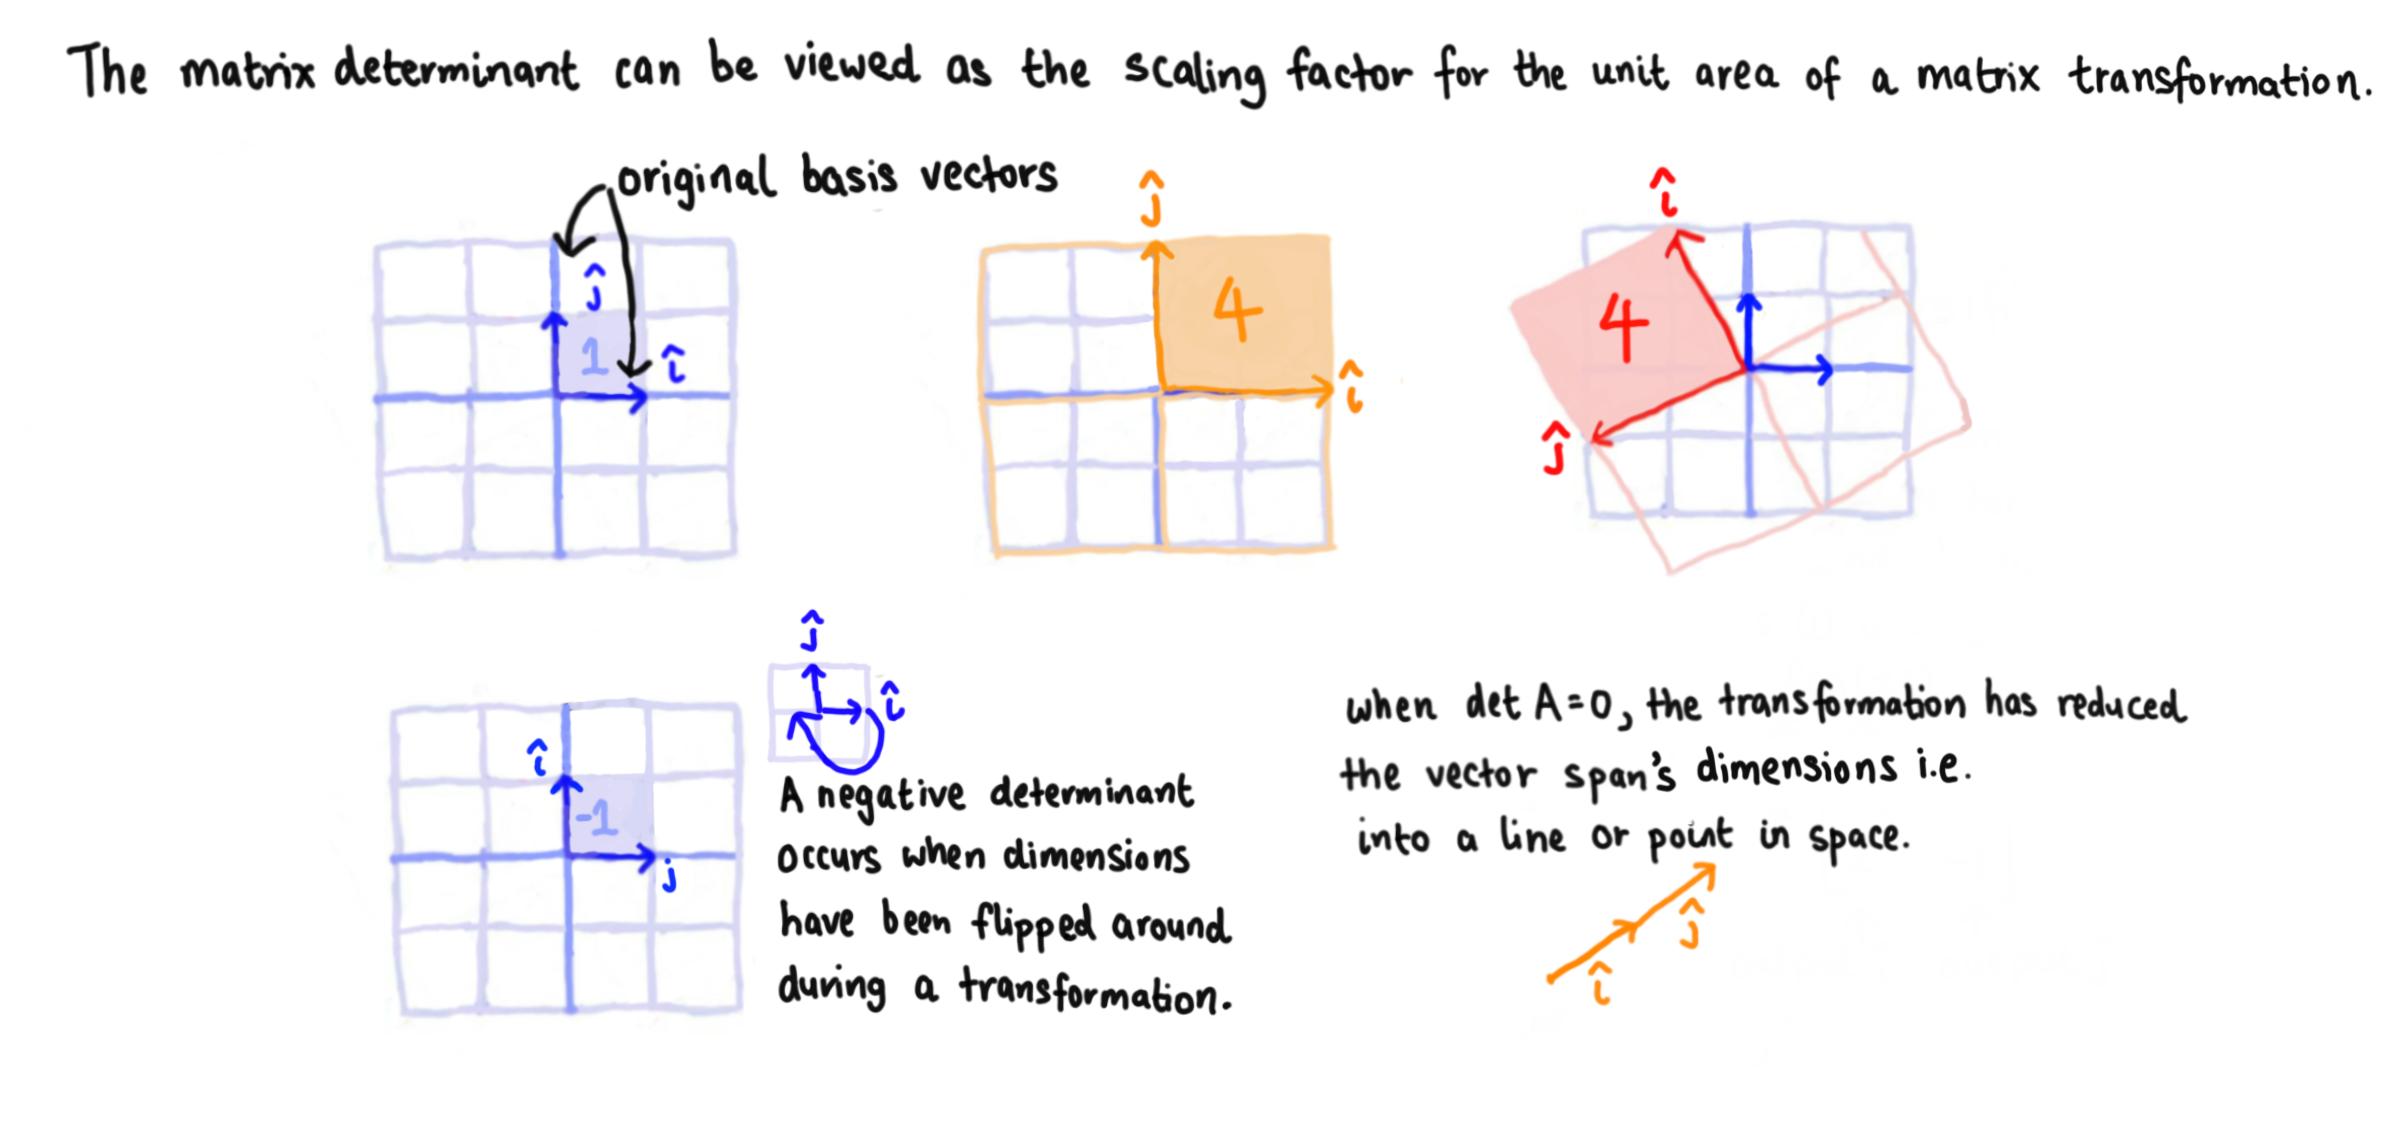 The matrix determinant can be viewed as the scaling factor for the unit area of a matrix transformation.
original basis vectors
ĵ
1
î
ĵ
4
î
î
4
ĵ
î
-1
j
ĵ
î
A negative determinant
occurs when dimensions
have been flipped around
during a transformation.
when det A=0, the transformation has reduced
the vector span's dimensions i.e.
into a line or point in space.
ĵ
î